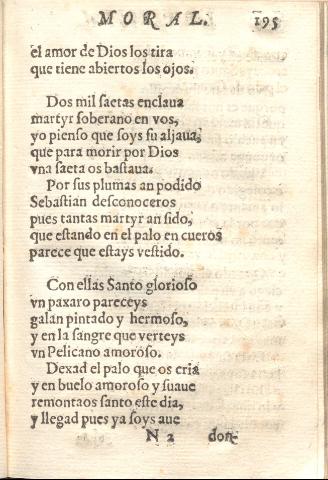 MORAL. 195
el amor de Dios los tira
que tiene abiertos los ojos.
Dos mil saetas enclaua
martyr soberano en vos,
yo pienso que soys su aljaua,
que para morir por Dios
vna saeta os bastaua.
Por sus plumas an podido
Sebastian desconoceros
pues tantas martyr an sido,
que estando en el palo en cueros
parece que estays vestido.
Con ellas Santo glorioso
vn paxaro pareceys
galan pintado y hermoso,
y en la sangre que verteys
vn Pelicano amoroso.
Dexad el palo que os cria
y en buelo amoroso y suaue
remontaos santo este dia,
y llegad pues ya soys aue
N 2 don-